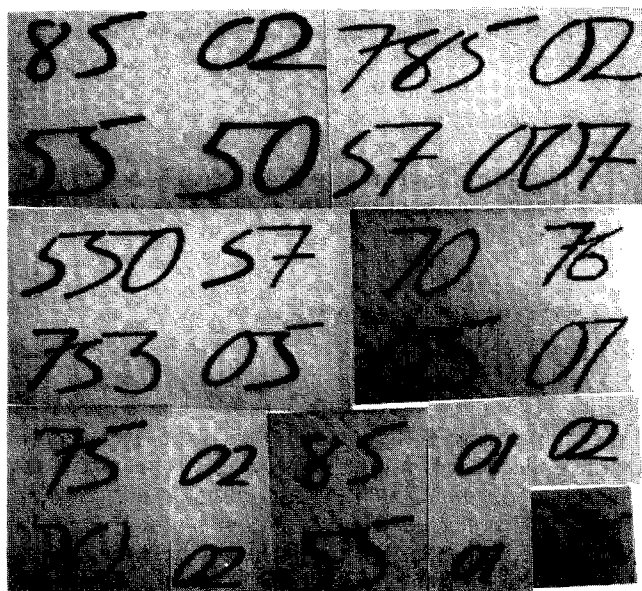 85 02 785 02
55 50 57 007
550 57 70 76
753 05 07
75 02 85 01 02
02 55 01